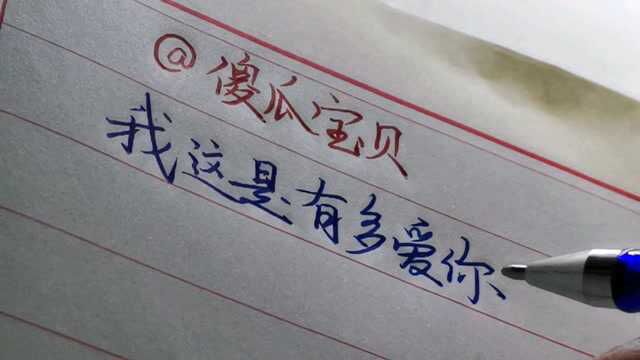 @傻瓜宝贝
我这是有多爱你